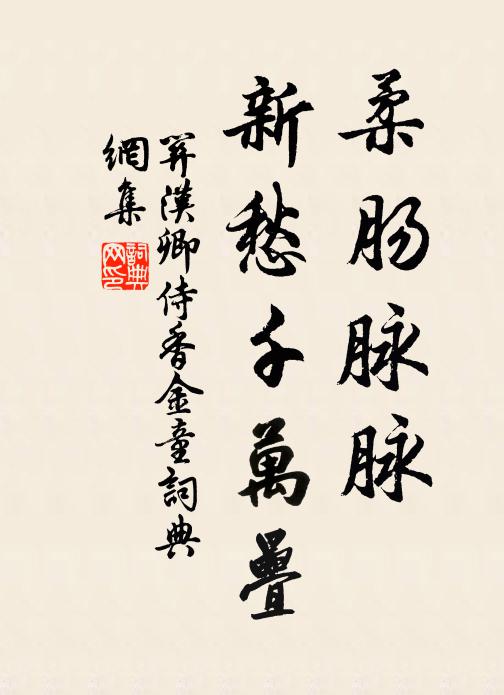 柔肠脉脉
新愁千萬疊
关漢卿侍香金童詞典
網集
詞典网印